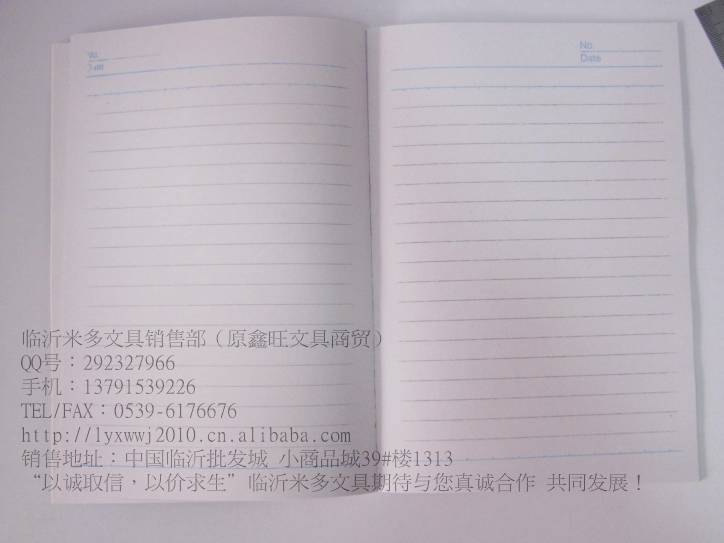 No.
Date
No
Date
临沂米多文具销售部（原鑫旺文具商贸）
QQ号：292327966
手机：13791539226
TEL/FAX：0539-6176676
http://lyxwwj2010.cn.alibaba.com
销售地址：中国临沂批发城 小商品城39#楼1313
“以诚取信，以价求生”临沂米多文具期待与您真诚合作 共同发展！